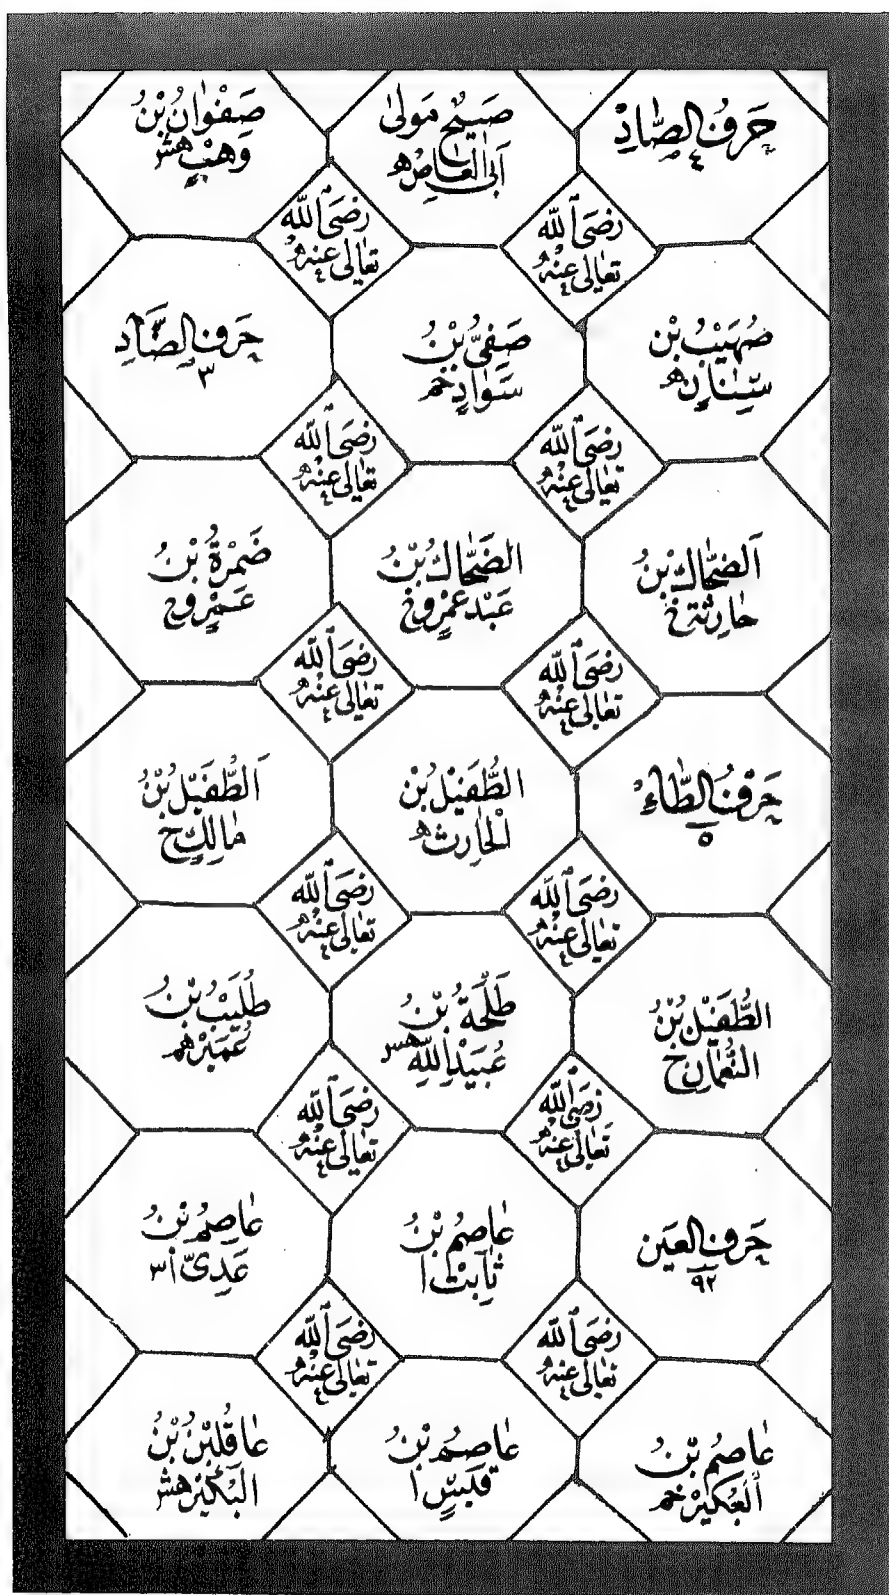 حَرْفُ الصَّادِ
٤
صَبِيْحُ مَوْلٰى
اَبِى الْعَاصِ ھ
صَفْوَانُ بْنُ
وَهْبٍ هش
رَضِىَ اللّٰه
تَعَالٰى عَنْهُ
رَضِىَ اللّٰه
تَعَالٰى عَنْهُ
صُهَيْبُ بْنُ
سِنَانٍ ھ
صَفِىُّ بْنُ
سَوَادٍ خم
حَرْفُ الضَّادِ
٣
رَضِىَ اللّٰه
تَعَالٰى عَنْهُ
رَضِىَ اللّٰه
تَعَالٰى عَنْهُ
اَلضَّحَّاكُ بْنُ
حَارِثَةَ خ
الضَّحَّاكُ بْنُ
عَبْدِ عَمْرٍو خ
ضَمْرَةُ بْنُ
عَمْرٍو خ
رَضِىَ اللّٰه
تَعَالٰى عَنْهُ
رَضِىَ اللّٰه
تَعَالٰى عَنْهُ
حَرْفُ الطَّاءِ
٥
الطُّفَيْلُ بْنُ
الْحَارِثِ ھ
اَلطُّفَيْلُ بْنُ
مَالِكٍ خ
رَضِىَ اللّٰه
تَعَالٰى عَنْهُ
رَضِىَ اللّٰه
تَعَالٰى عَنْهُ
الطُّفَيْلُ بْنُ
النُّعْمَانِ خ
طَلْحَةُ بْنُ
عُبَيْدِ اللّٰهِ هس
طُلَيْبُ بْنُ
عُمَيْرٍ هم
رَضِىَ اللّٰه
تَعَالٰى عَنْهُ
رَضِىَ اللّٰه
تَعَالٰى عَنْهُ
حَرْفُ الْعَيْنِ
٩٢
عَاصِمُ بْنُ
ثَابِتٍ ا
عَاصِمُ بْنُ
عَدِىٍّ اس
رَضِىَ اللّٰه
تَعَالٰى عَنْهُ
رَضِىَ اللّٰه
تَعَالٰى عَنْهُ
عَاصِمُ بْنُ
الْعُكَيْرِ خم
عَاصِمُ بْنُ
قَيْسٍ ا
عَاقِلُ بْنُ
الْبُكَيْرِ هش